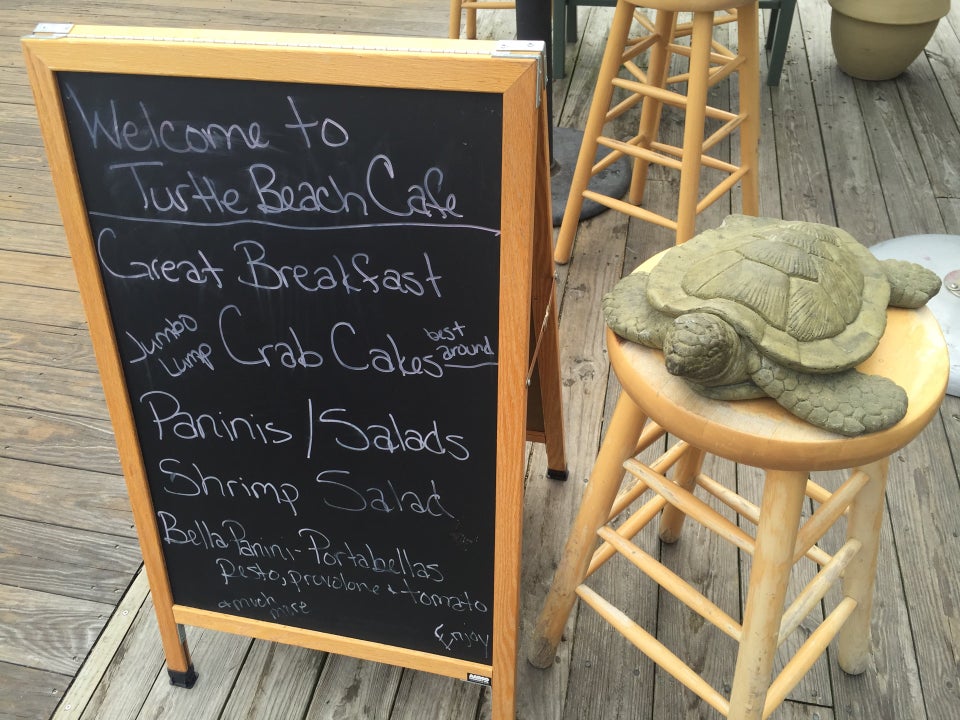 Welcome to
Turtle Beach Cafe
Great Breakfast
Jumbo Lump Crab Cakes best around
Paninis / Salads
Shrimp Salad
Bella Panini - Portabellas
Pesto, provolone + tomato
& much more
Enjoy